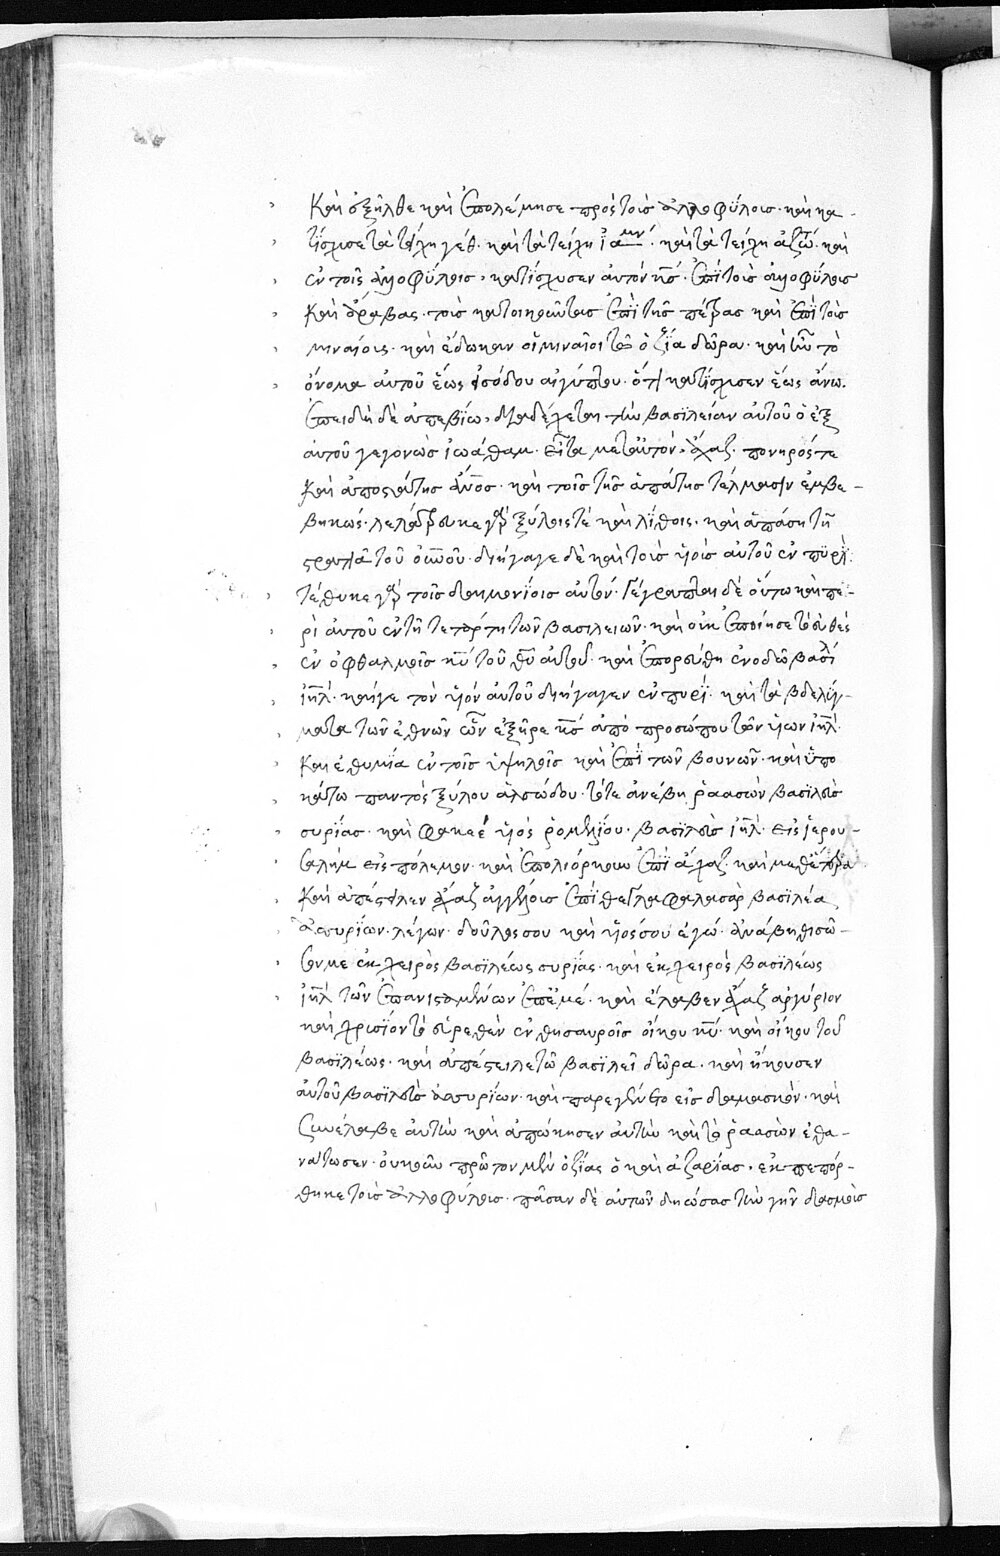 Καὶ ἐξῆλθε καὶ ἐπολέμησε πρὸς τοὺς ἀλλοφύλους· καὶ κα-
τίσχισε τὰ τείχη γέθ· καὶ τὰ τείχη ἰαμν´· καὶ τὰ τείχη ἀζώτ· καὶ
ἐν τοῖς ἀλλοφύλοις, κατίσχυσεν αὐτὸν κς· ἐπὶ τοὺς ἀλλοφύλους
Καὶ ἄραβας· τοὺς κατοικοῦντας ἐπὶ τῆς πέτρας καὶ ἐπὶ τοὺς
μιναίους· καὶ ἔδωκαν οἱ μιναῖοι τῶ ὀζία δῶρα· καὶ ἦν τὸ
ὄνομα αὐτοῦ ἕως εἰσόδου αἰγύπτου· ὅτι κατίσχισεν ἕως ἄνω.
ἐπειδὴ δὲ ἀπεβίω, διαδέχεται τὴν βασιλείαν αὐτοῦ ὁ ἐξ
αὐτοῦ γεγονὼς ἰωάθαμ· εἶτα μετ αὐτὸν, ἄχαζ· πονηρός τε
Καὶ ἀποστάτης ἄνος· καὶ τοῖς τῆς ἀπάτης τέλμασιν ἐμβε-
βηκώς· λελάτρευκε γὰρ ξύλοις τὲ καὶ λίθοις· καὶ ἁπάση τῆ
στρατιᾶ τοῦ οὐνοῦ· διήγαγε δὲ καὶ τοὺς υἱοὺς αὐτοῦ ἐν πυρὶ·
τέθυκε γὰρ τοῖς δαιμονίοις αὐτόν· Γέγραπται δὲ οὕτω καὶ πε-
ρὶ αὐτοῦ ἐν τῆ τετάρτη τῶν βασιλειῶν· καὶ οὐκ ἐποίησε τὸ εὐθὲς
ἐν ὀφθαλμοῖς κυ τοῦ θυ αὐτοῦ· καὶ ἐπορεύθη ἐν ὁδῶ βασιλ
ιηλ· καίγε τὸν υἱὸν αὐτοῦ διήγαγεν ἐν πυρί· κατὰ τὰ βδελύγ-
ματα τῶν ἐθνῶν ὧν ἐξῆρε κς ἀπὸ προσώπου τῶν υἱῶν ιηλ·
Καὶ ἐθυμία ἐν τοῖς ὑψηλοῖς καὶ ἐπὶ τῶν βουνῶν· καὶ ὑπο
κάτω παντὸς ξύλου ἀλσώδου· τότε ἀνέβη ῥαασσὼν βασιλεὺς
συρίας· καὶ φακεὲ υἱὸς ῥομελίου· βασιλεὺς ιηλ· εἰς ἱερου-
σαλὴμ εἰς πόλεμον· καὶ ἐπολιόρκουν ἐπὶ ἄχαζ· καὶ μεθ ἕτερα
Καὶ ἀπέστειλεν ἄχαζ ἀγγέλους ἐπὶ θεγλαφαλασὰρ βασιλέα
ἀσσυρίων· λέγων· δοῦλος σου καὶ υἱός σου ἐγώ· ἀνάβηθι σῶ-
σον με ἐκ χειρὸς βασιλέως συρίας· καὶ ἐκ χειρὸς βασιλέως
ιηλ τῶν ἐπανισταμένων ἐπ ἐμέ· καὶ ἔλαβεν ἄχαζ ἀργύριον
καὶ χρισίον τὸ εὑρεθὲν ἐν θησαυροῖς οἴκου κυ· καὶ οἴκου τοῦ
βασιλέως· καὶ ἀπέστειλε τῶ βασιλεῖ δῶρα· καὶ ἤκουσεν
αὐτοῦ βασιλεὺς ἀσσυρίων· καὶ παρεγένετο εἰς δαμασκόν· καὶ
συνέλαβε αὐτὴν καὶ ἀπώκησεν αὐτὴν καὶ τὸν ῥαασσὼν ἐθα-
νάτωσεν· οὐκοῦν πρῶτον μὲν ὀζίας ὁ καὶ ἀζαρίας, ἐκπεπόρ-
θηκε τοὺς ἀλλοφύλους· πᾶσαν δὲ αὐτῶν διώσας τὴν γῆν δασμοὺς